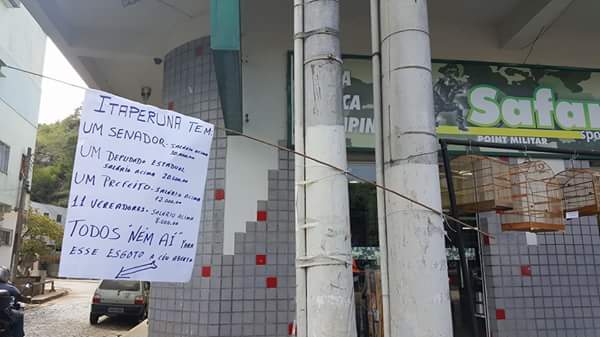 ITAPERUNA TEM:
UM SENADOR - SALÁRIO ACIMA
30.000,00
UM DEPUTADO ESTADUAL
SALÁRIO ACIMA
20.000,00
UM PREFEITO - SALÁRIO ACIMA
12.000,00
11 VEREADORES - SALÁRIO ACIMA
8.000,00
TODOS "NEM AÍ" PARA
ESSE ESGOTO A CÉU ABERTO
Safari
POINT MILITAR